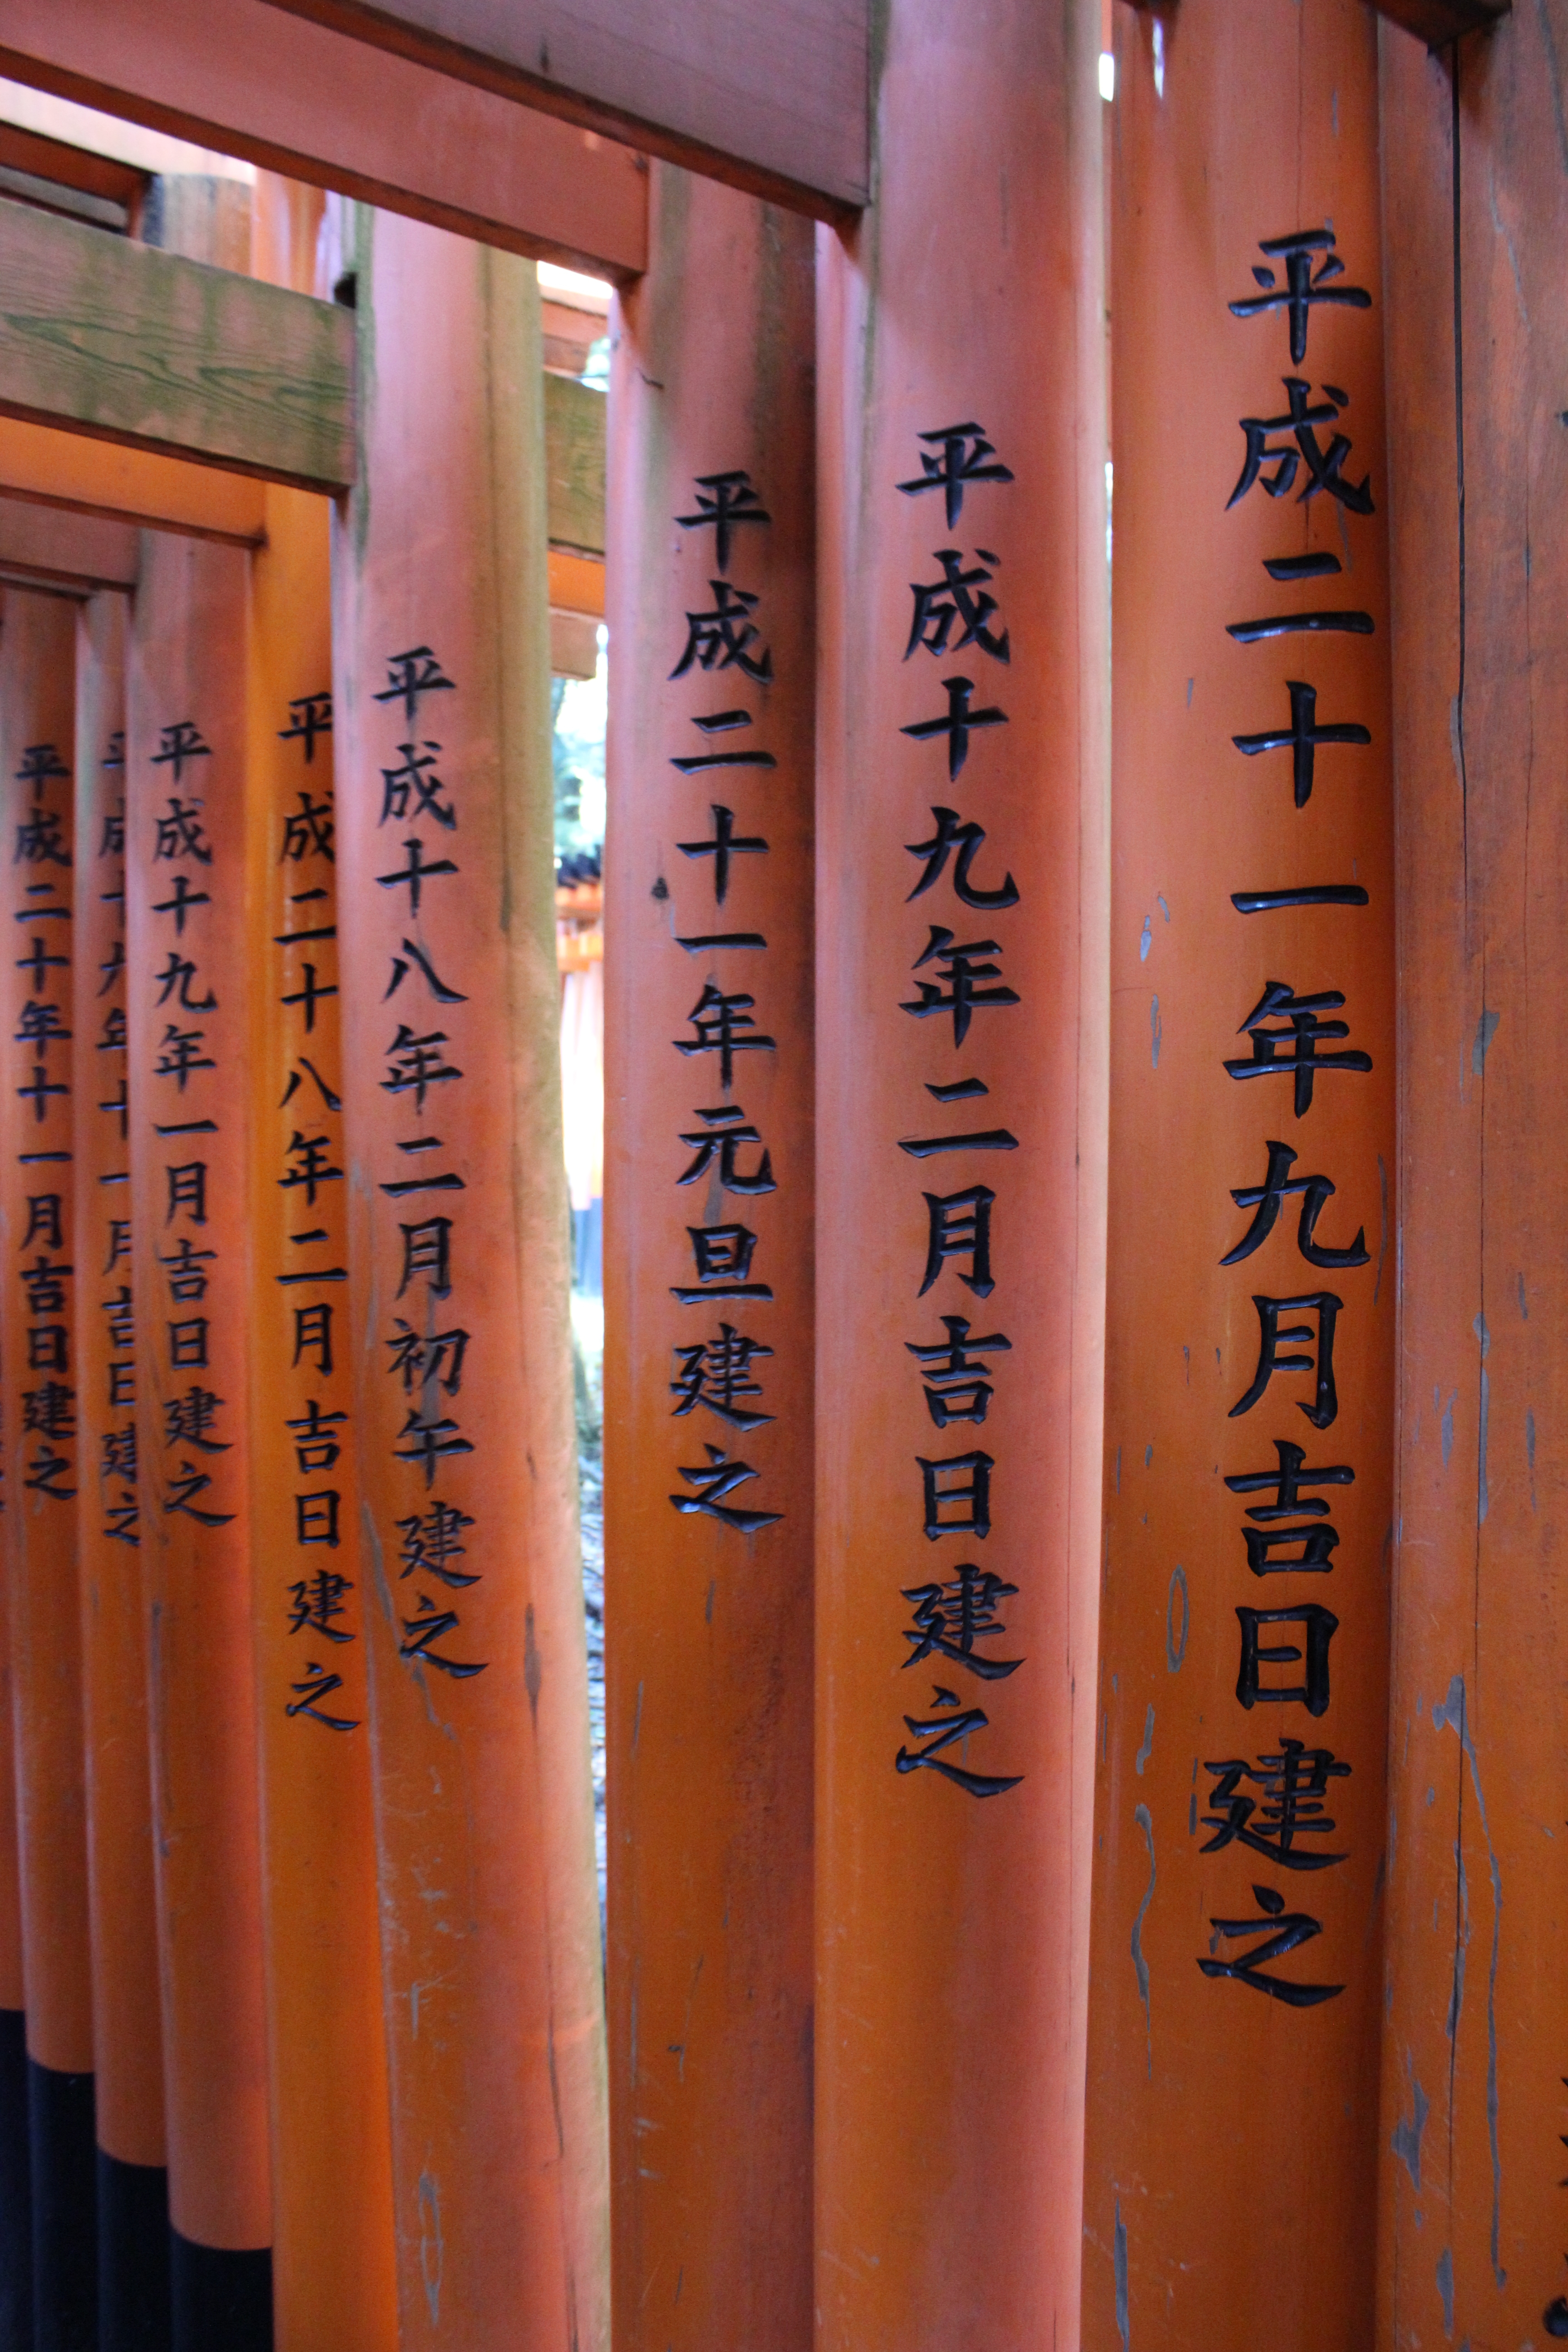 平成二十一年九月吉日建之
平成十九年二月吉日建之
平成二十一年元旦建之
平成十八年二月初午建之
平成二十八年二月吉日建之
平成十九年一月吉日建之
平成十六年十一月吉日建之
平成二十年十一月吉日建之